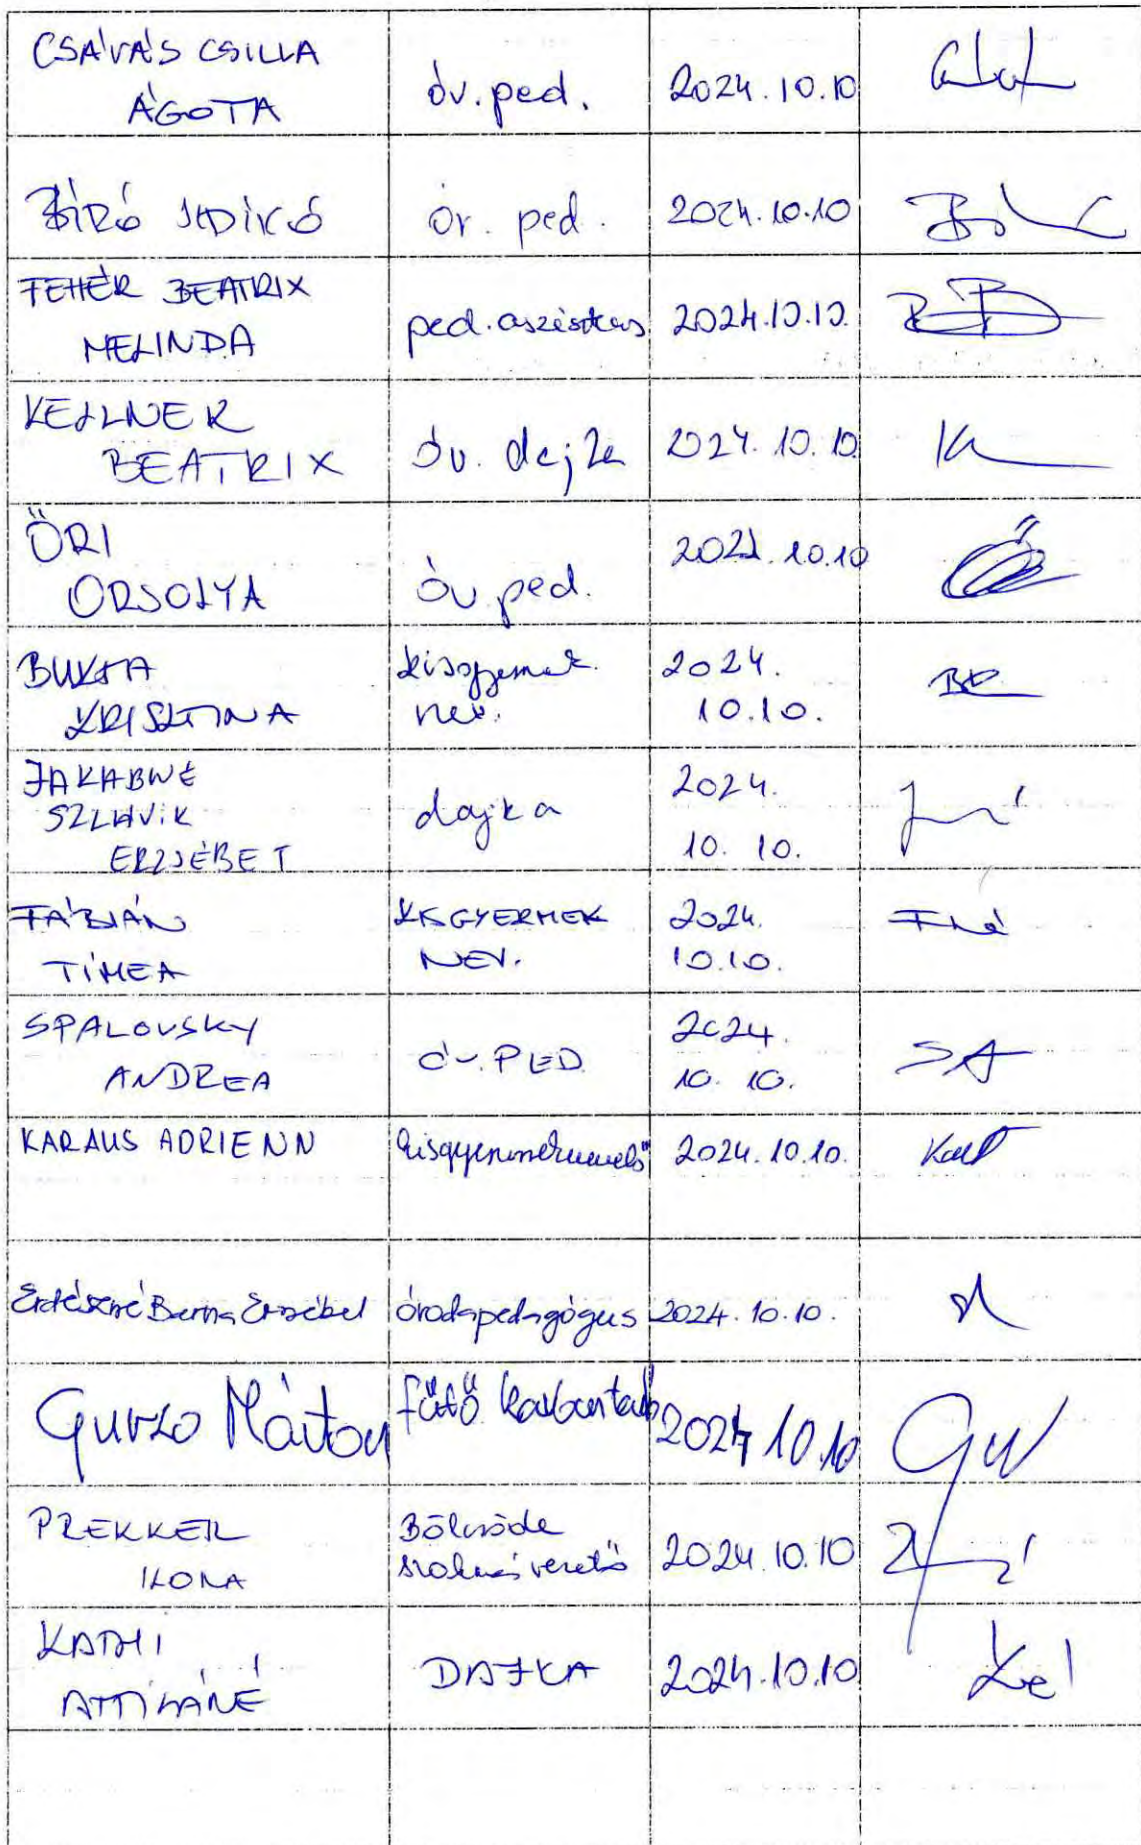 CSÁVÁS CSILLA
ÁGOTA
óv. ped.
2024.10.10
BÍRÓ ILDIKÓ
óv. ped.
2024.10.10
FEHÉR BEATRIX
MELINDA
ped. aszisztens
2024.10.10.
KELLNER
BEATRIX
óv. dajka
2024.10.10
ŐRI
ORSOLYA
óv. ped.
2024.10.10
BUKTA
KRISZTINA
kisgyermek
nev.
2024.
10.10.
JAKABNÉ
SZLÁVIK
ERZSÉBET
dajka
2024.
10.10.
FÁBIÁN
TÍMEA
KISGYERMEK
NEV.
2024.
10.10.
SPALOVSKY
ANDREA
óv. PED
2024.
10.10.
KARAUS ADRIENN
kisgyermeknevelő
2024.10.10.
Erdészné Barna Erzsébet
óvodapedagógus
2024.10.10.
Gurzo Márton
fűtő karbantartó
2024 10.10
PREKKER
ILONA
Bölcsőde
szakmai vezető
2024.10.10
KATHI
ATTILÁNÉ
DAJKA
2024.10.10